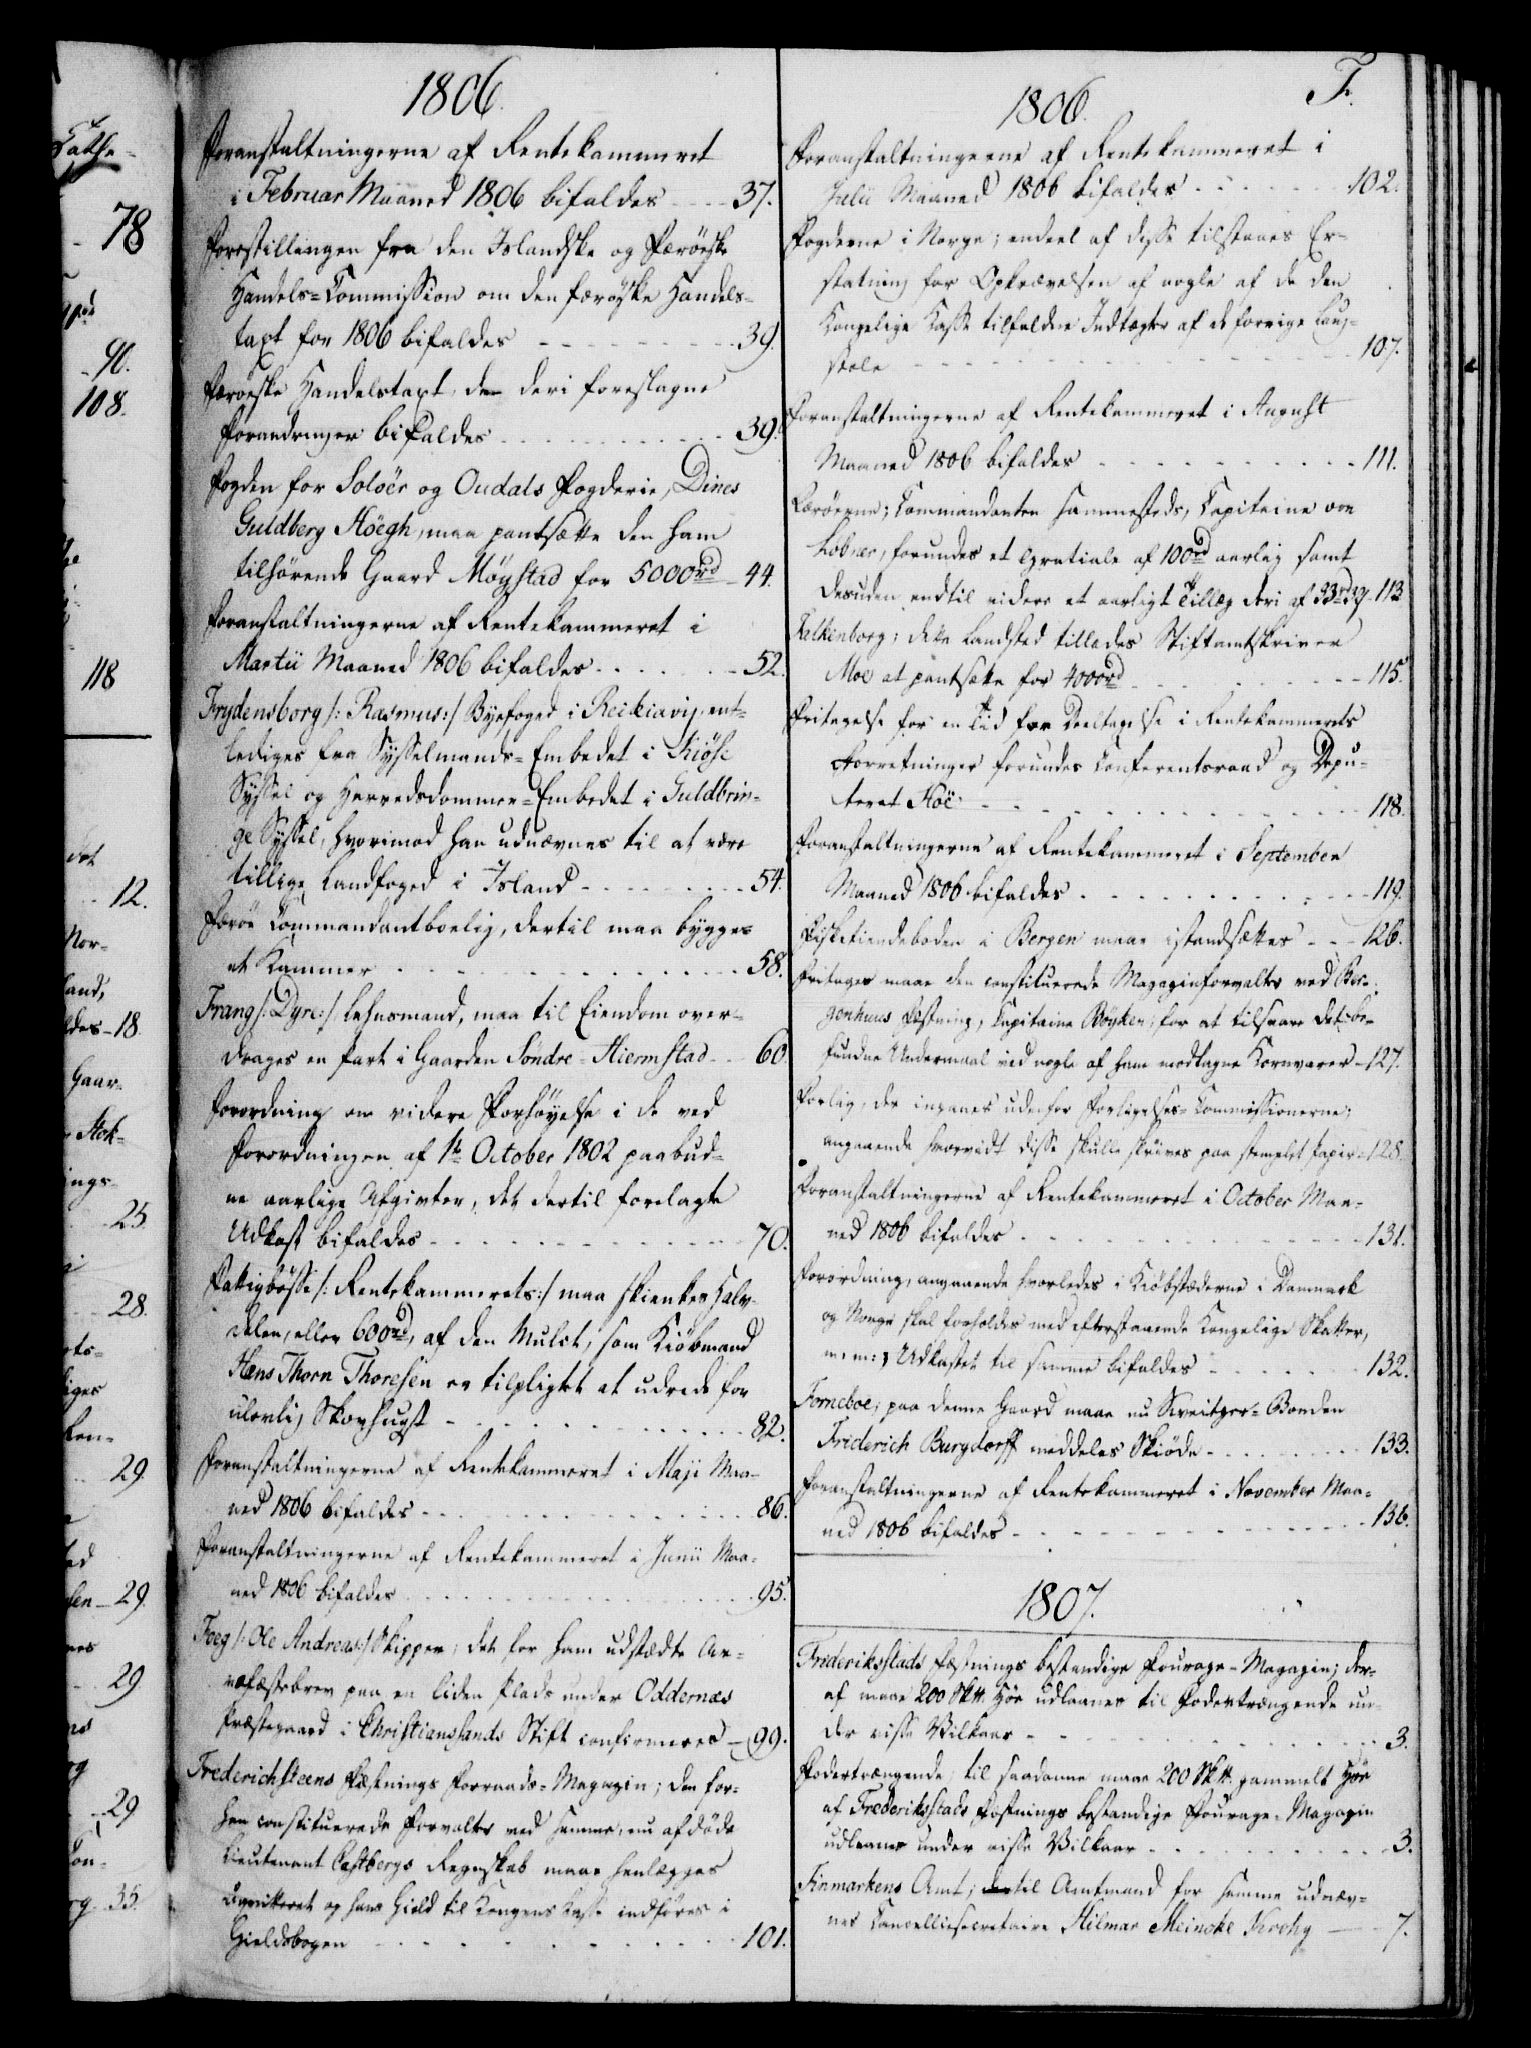 1806.
Foranstaltningerne af Rentekammeret
i Februar Maaned 1806 bifaldes - - - - 37.
Forestillingen fra den Islandske og Færöeske
Handels-Commission om den færöyske Handels-
taxt for 1806 bifaldes - - - - 39.
Færöeske Handelstaxt, de deri foreslagne
Forandringer bifaldes - - - - 39.
Fogden for Soloer og Oudals Fogderie, Dines
Guldberg Höegh, maa pantsætte den ham
tilhörende Gaard Möystad for 5000rd - 44.
Foranstaltningerne af Rentekammeret i
Martii Maaned 1806 bifaldes - - - - 52.
Frydensborg /: Rasmus :/ Byefoged i Reikiavig, ent-
lediges fra Sysselmands-Embedet i Kiöse
Syssel og Herredsdommer-Embedet i Guldbrin-
ge Syssel, hvorimod han udnævnes til at være
tillige Landfoged i Island - - - - 54.
Færöe Commandantboelig, dertil maa bygges
et Kammer - - - - 58.
Frang /: Dyre :/ Lehnsmand, maa til Eiendom over-
drages en Part i Gaarden Söndre-Hiermstad - - 60.
Forordning om videre Forhöyelse i de ved
Forordningen af 1te October 1802 paabud-
ne aarlige Afgivter, det dertil forelagte
Udkast bifaldes - - - - 70.
Fattigbösse /: Rentekammerets :/ maa skienkes Halv-
delen, eller 600rd, af den Mulct, som Kiöbmand
Hans Thorn Thoresen er tilpligtet at udrede for
ulovlig Skovhugst - - - - 82.
Foranstaltningerne af Rentekammeret i Maji Maa-
ned 1806 bifaldes - - - - 86.
Foranstaltningerne af Rentekammeret i Junii Maa-
ned 1806 bifaldes - - - - 95.
Foeg /: Ole Andreas :/ Skipper, det for ham udstædte Ar-
vefæstebrev paa en liden Plads under Oddernæs
Præstegaard i Christianssands Stift confirmeres - 99.
Frederichsteens Fæstnings Forraads-Magazin; den for-
hen constituerede Forvalter ved samme, nu afdöde
Lieutenant Castbergs Regnskab maae henlægges
og hans Gield til Kongens Kasse indföres i
Gieldsbogen - - - - 101.
1806.
F.
Foranstaltningerne af Rentekammeret i
Julii Maaned 1806 bifaldes - - - - 102.
Fogderne i Norge; endeel af disse tilstaaes Er-
statning for Opkrævelsen af nogle af de den
Kongelige Kasse tilfaldne Indtægter af de forrige Laug-
stole - - - - 107.
Foranstaltningerne af Rentekammeret i August
Maaned 1806 bifaldes - - - - 111.
Færöerne; Commandanten sammesteds, Capitaine von
Löbner, forundes et Gratiale af 100rd aarlig samt
desuden endtil videre et aarligt Tillæg deri af 33rd 32s - 113
Falkenborg; dette Landsted tillades Stiftamtskriver
Moe at pantsætte for 4000rd - - - - 115.
Fritagelse for en Tid fra Deeltagelse i Rentekammerets
Forretninger forundes Conferentsraad og Depu-
teret Höe - - - - 118.
Foranstaltningerne af Rentekammeret i September
Maaned 1806 bifaldes - - - - 119.
Fisketiendeboden i Bergen maae istandsættes - - - 126.
Fritages maae den constituerede Magazinforvalter ved Ber-
genhuus Fæstning, Capitaine Böyken, for at tilsvare det be-
fundne Undermaal ved nogle af ham modtagne Kornvarer - 127.
Forlig, der inganes udenfor Forligelses-Commissionerne;
angaaende hvorvidt disse skulle skrives paa stemplet Papir - 128.
Foranstaltningerne af Rentekammeret i October Maa-
ned 1806 bifaldes - - - - 131.
Forordning, angaaende hvorledes i Kiöbstæderne i Danmark
og Norge skal forholdes med efterstaaende Kongelige Skatter,
m: m:; Udkastet til samme bifaldes - - - - 132.
Forneboe, paa denne Gaard maae nu Sveitzer-Bonden
Friderich Burgdorff meddeles Skiöde - - - - 133.
Foranstaltningerne af Rentekammeret i November Maa-
ned 1806 bifaldes - - - - 136.
1807.
Frideriksstads Fæstnings bestandige Fourage-Magazin; der-
af maae 200 Sk. Höe udlaanes til Fodertrængende un-
der visse Vilkaar - - - - 3.
Fodertrængende, til saadanne maae 200 Sk. gammelt Höe
af Frederiksstads Fæstnings bestandige Fourage-Magazin
udlaanes under visse Vilkaar - - - - 3.
Finmarkens Amt; til Amtmand for samme udnæv-
nes Cancelliesecretaire Hilmar Meincke Krohg - - 7.